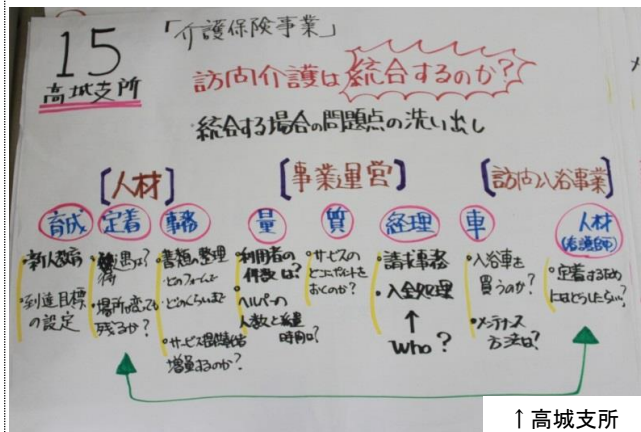 15
高城支所
「介護保険事業」
訪問介護は統合するのか?
・統合する場合の問題点の洗い出し
【人材】
【事業運営】
【訪問入浴事業】
育成
定着
事務
量
質
経理
車
人材
(看護師)
・新人教育
・到達目標
の設定
・待遇は?
・場所が変っても
残るか?
・書類の整理
・どのフォームで
・どのくらいまで
・サービス提供責任者
増員するのか?
・利用者の
件数は?
・ヘルパーの
人数と派遣
時間は?
・サービスの
どこにポイントを
おくのか?
・請求事務
・入金処理
↑
Who?
・入浴車を
買うのか?
・メンテナンス
方法は?
・定着するため
にはどうしたらいい?
↑高城支所